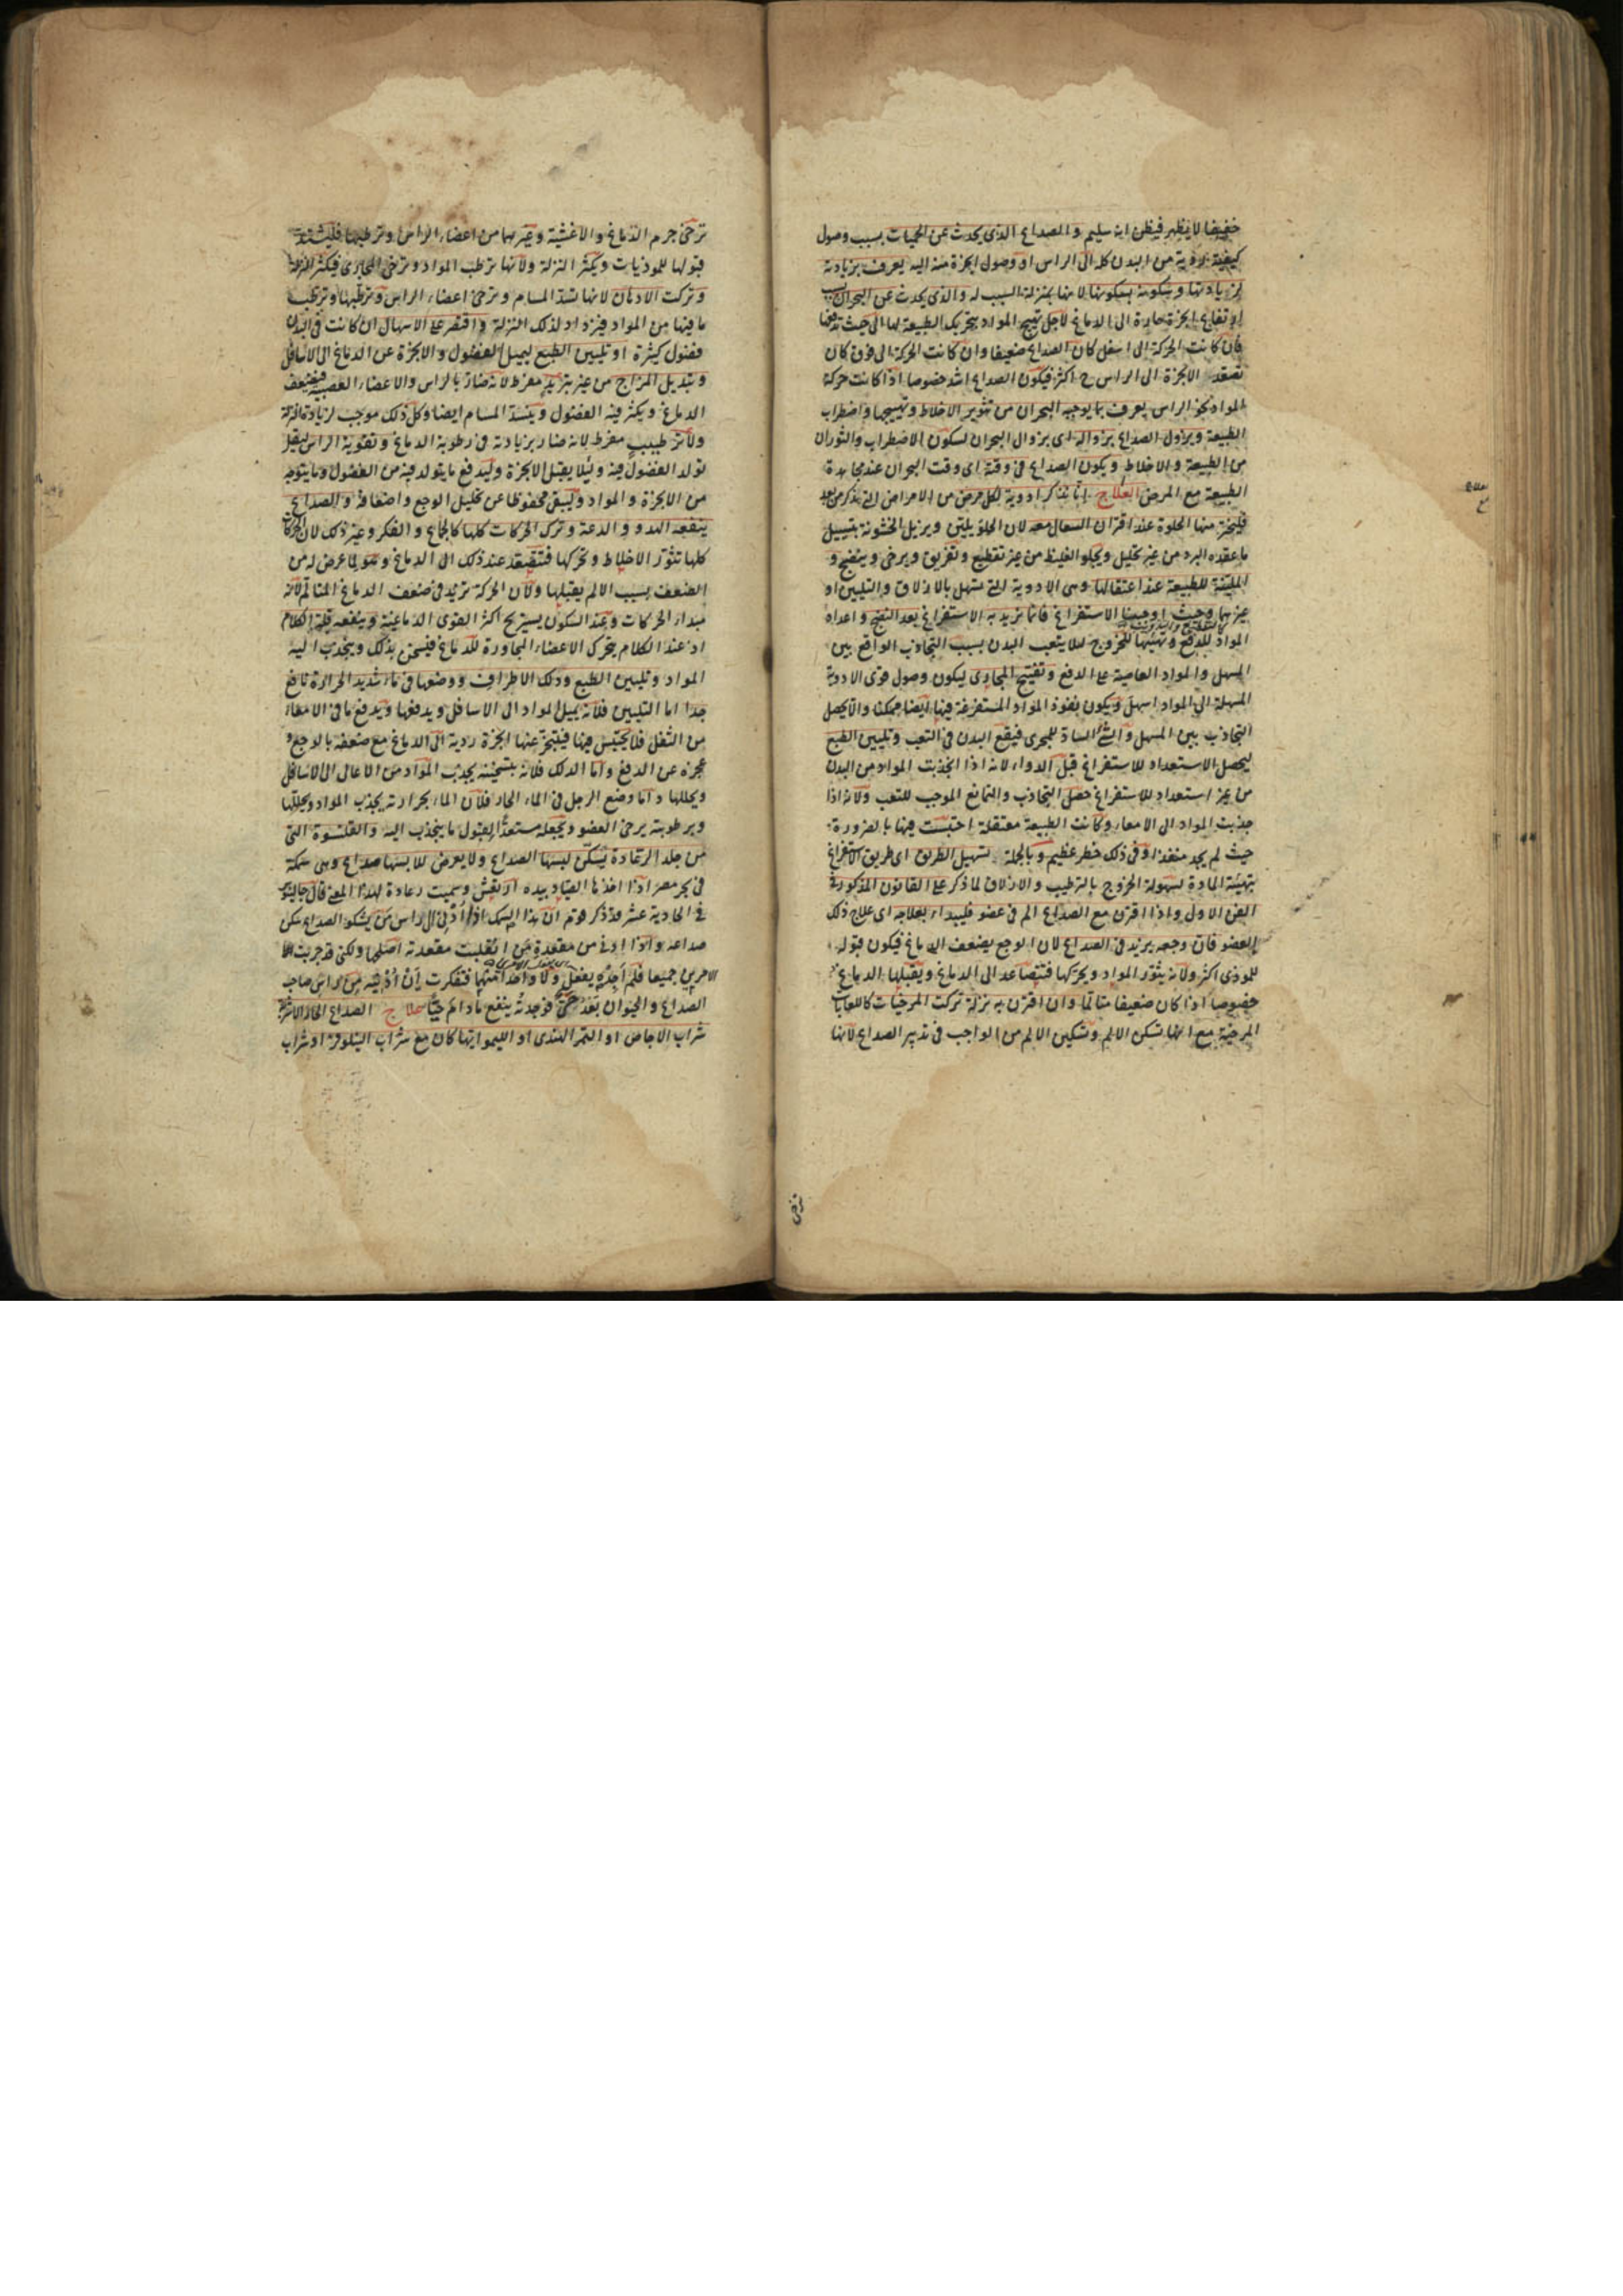 خفيفا لا يظهر فيظن انه سليم والصداع الذى يحدث عن الحميات بسبب وصول
كيفية ردية من البدن كله الى الراس او وصول ابخرة منه اليه يعرف بزيادته
لزيادتها وسكونه بسكونها لانها بمنزلة السبب له والذى يحدث عن البحران بسبب
ارتفاع ابخرة حارة الى الدماغ لاجل تهيج المواد بتحريك الطبيعة لها الى حيث تدفعها
فان كانت الحركة الى اسفل كان الصداع ضعيفا وان كانت الحركة الى فوق كان
تصعد الابخرة الى الراس ح اكثر فيكون الصداع اشد خصوصا اذا كانت حركة
المواد نحو الراس يعرف بما يوجبه البحران من تثوير الاخلاط وتهييجها واضطراب
الطبيعة ويزول الصداع بزواله اى بزوال البحران لسكون الاضطراب والثوران
من الطبيعة والاخلاط ويكون الصداع فى وقته اى وقت البحران عند مجاهدة
الطبيعة مع المرض العلاج انا نذكر ادوية لكل مرض من الامراض التى يذكر من بعد
فليختر منها الحلوة عند اقتران السعال معه لان الحلو يلين ويزيل الخشونة بتسييل
ما عقده البرد من غير تحليل ويجلو الغليظ من غير تقطيع وتفريق ويرخى وينضج و
الملينة للطبيعة عند اعتقالها وهى الادوية التى تسهل بالازلاق والتليين او
غيرهما وحيث اوجبنا الاستفراغ فانما نريد به الاستفراغ بعد النضج واعداد
المواد للدفع وتهيئتها للخروج لئلا يتعب البدن بسبب التجاذب الواقع بين
المسهل والمواد العاصية على الدفع وتفتيح المجارى ليكون وصول قوى الادوية
المسهلة الى المواد اسهل ويكون نفوذ المواد المستفرغة فيها ايضا ممكنا والا يحصل
التجاذب بين المسهل والشئ الساد للمجرى فيقع البدن فى التعب وتليين الطبع
ليحصل الاستعداد للاستفراغ قبل الدواء لانه اذا انجذبت المواد من البدن
من غير استعداد للاستفراغ حصل التجاذب والتمانع الموجب للتعب ولانه اذا
جذبت المواد الى الامعاء وكانت الطبيعة معتقلة احتبست فيها بالضرورة
حيث لم يجد منفذا وفى ذلك خطر عظيم وبالجملة تسهيل الطريق اى طريق الاستفراغ
بتهيئة المادة لسهولة الخروج بالترطيب والازلاق لما ذكر على القانون المذكور فى
الفن الاول واذا اقترن مع الصداع الم فى عضو فليبداء بعلاجه اى علاج ذلك
العضو فان وجعه يزيد فى الصداع لان الوجع يضعف الدماغ فيكون قبوله
للموذى اكثر ولانه يثور المواد ويحركها فتتصاعد الى الدماغ ويقبلها الدماغ
خصوصا اذا كان ضعيفا متالما وان اقترن به نزلة تركت المرخيات كاللعابات
المرخية مع انها تسكن الالم وتسكين الالم من الواجب فى تدبير الصداع لانها
ترخى
ترخى جرم الدماغ والاغشية وغيرهما من اعضاء الراس وترطبها فيشتد
قبولها للموذيات ويكثر النزلة ولانها ترطب المواد وترخى المجارى فيكثر النزلة
وتركت الادهان لانها تسد المسام وترخى اعضاء الراس وترطبها وترطب
ما فيها من المواد فيزداد لذلك النزلة واقتصر على الاسهال ان كانت فى البدن
فضول كثيرة او تليين الطبع ليميل الفضول والابخرة عن الدماغ الى الاسافل
وتبديل المزاج من غير تبريد مفرط لانه ضار بالراس والاعضاء العصبية فيضعف
الدماغ ويكثر فيه الفضول ويسد المسام ايضا وكل ذلك موجب لزيادة النزلة
ولا ترطيب مفرط لانه ضار بزيادته فى رطوبة الدماغ وتقوية الراس ليقل
تولد الفضول فيه ولئلا يقبل الابخرة وليدفع ما يتولد فيه من الفضول وما يتوجه
من الابخرة والمواد وليبقى محفوظا عن تحليل الوجع واضعافه والصداع
ينفعه الهدو والدعة وترك الحركات كلها كالجماع والفكر وغير ذلك لان الحركات
كلها تثور الاخلاط وتحركها فتتصعد عند ذلك الى الدماغ وهو لما عرض له من
الضعف بسبب الالم يقبلها ولان الحركة تزيد فى ضعف الدماغ المتالم لانه
مبداء الحركات وعند السكون يستريح اكثر القوى الدماغية وينفعه قلة الكلام
اذ عند الكلام يتحرك الاعضاء المجاورة للدماغ فيسخن بذلك وينجذب اليه
المواد وتليين الطبع ودلك الاطراف ووضعها فى ماء شديد الحرارة نافع
جدا اما التليين فلانه يميل المواد الى الاسافل ويدفعها ويدفع ما فى الامعاء
من الثفل فلا يحتبس فيها فيتبخر عنها ابخرة ردية الى الدماغ مع ضعفه بالوجع و
عجزه عن الدفع واما الدلك فلانه بتسخينه يجذب المواد من الاعالى الى الاسافل
ويحللها واما وضع الرجل فى الماء الحار فلان الماء بحرارته يجذب المواد ويحللها
وبرطوبته يرخى العضو ويجعله مستعدا لقبول ما ينجذب اليه والقلنسوة التى
من جلد الرعادة يسكن لبسها الصداع ولا يعرض للابسها صداع وهى سمكة
فى بحر مصر اذا اخذها الصياد بيده ارتعش وسميت رعادة لهذا المعنى قال جالينوس
فى الحادية عشر قد ذكر قوم ان هذا السمك اذا ادنى الى راس من يشكو الصداع سكن
صداعه واذا ادنى من مقعدة من انقلبت مقعدته اصلحها ولكنى قد جربت
الامرين جميعا فلم اجده يفعل ولا واحدا منهما ففكرت ان ادنيه من راس صاحب
الصداع والحيوان بعد حى فوجدته ينفع ما دام حيا علاج الصداع الحار الاشربة
شراب الاجاص او التمر الهندى او الليمو ايها كان مع شراب النيلوفر او شراب